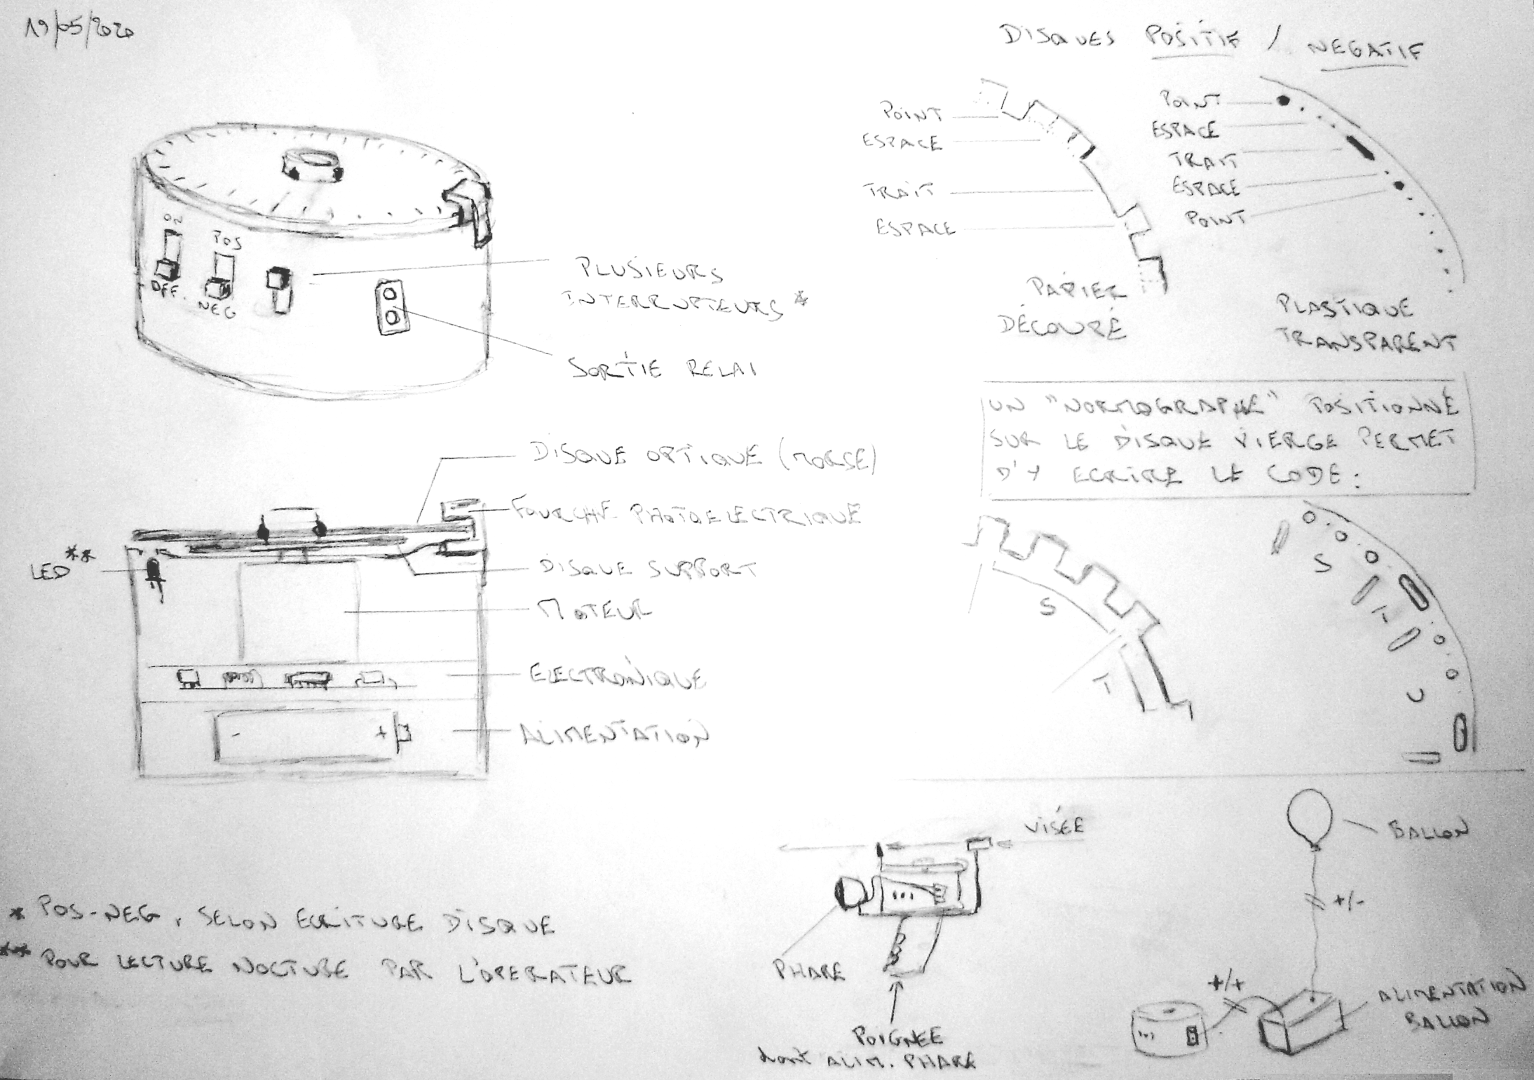 19/05/2020
DISQUES POSITIF / NEGATIF
POINT
ESPACE
TRAIT
ESPACE
PAPIER
DÉCOUPÉ
POINT
ESPACE
TRAIT
ESPACE
POINT
PLASTIQUE
TRANSPARENT
ON
OFF.
POS
NEG
PLUSIEURS
INTERRUPTEURS *
SORTIE RELAI
UN "NORMOGRAPHE" POSITIONNÉ
SUR LE DISQUE VIERGE PERMET
D'Y ECRIRE LE CODE :
DISQUE OPTIQUE (MORSE)
FOURCHE PHOTOELECTRIQUE
LED **
DISQUE SUPPORT
MOTEUR
ELECTRONIQUE
ALIMENTATION
- +
S
T
S
T
U
VISÉE
PHARE
POIGNÉE
dont ALIM. PHARE
BALLON
+/-
+/+
ALIMENTATION
BALLON
* POS-NEG, SELON ECRITURE DISQUE
** POUR LECTURE NOCTURE PAR L'OPERATEUR